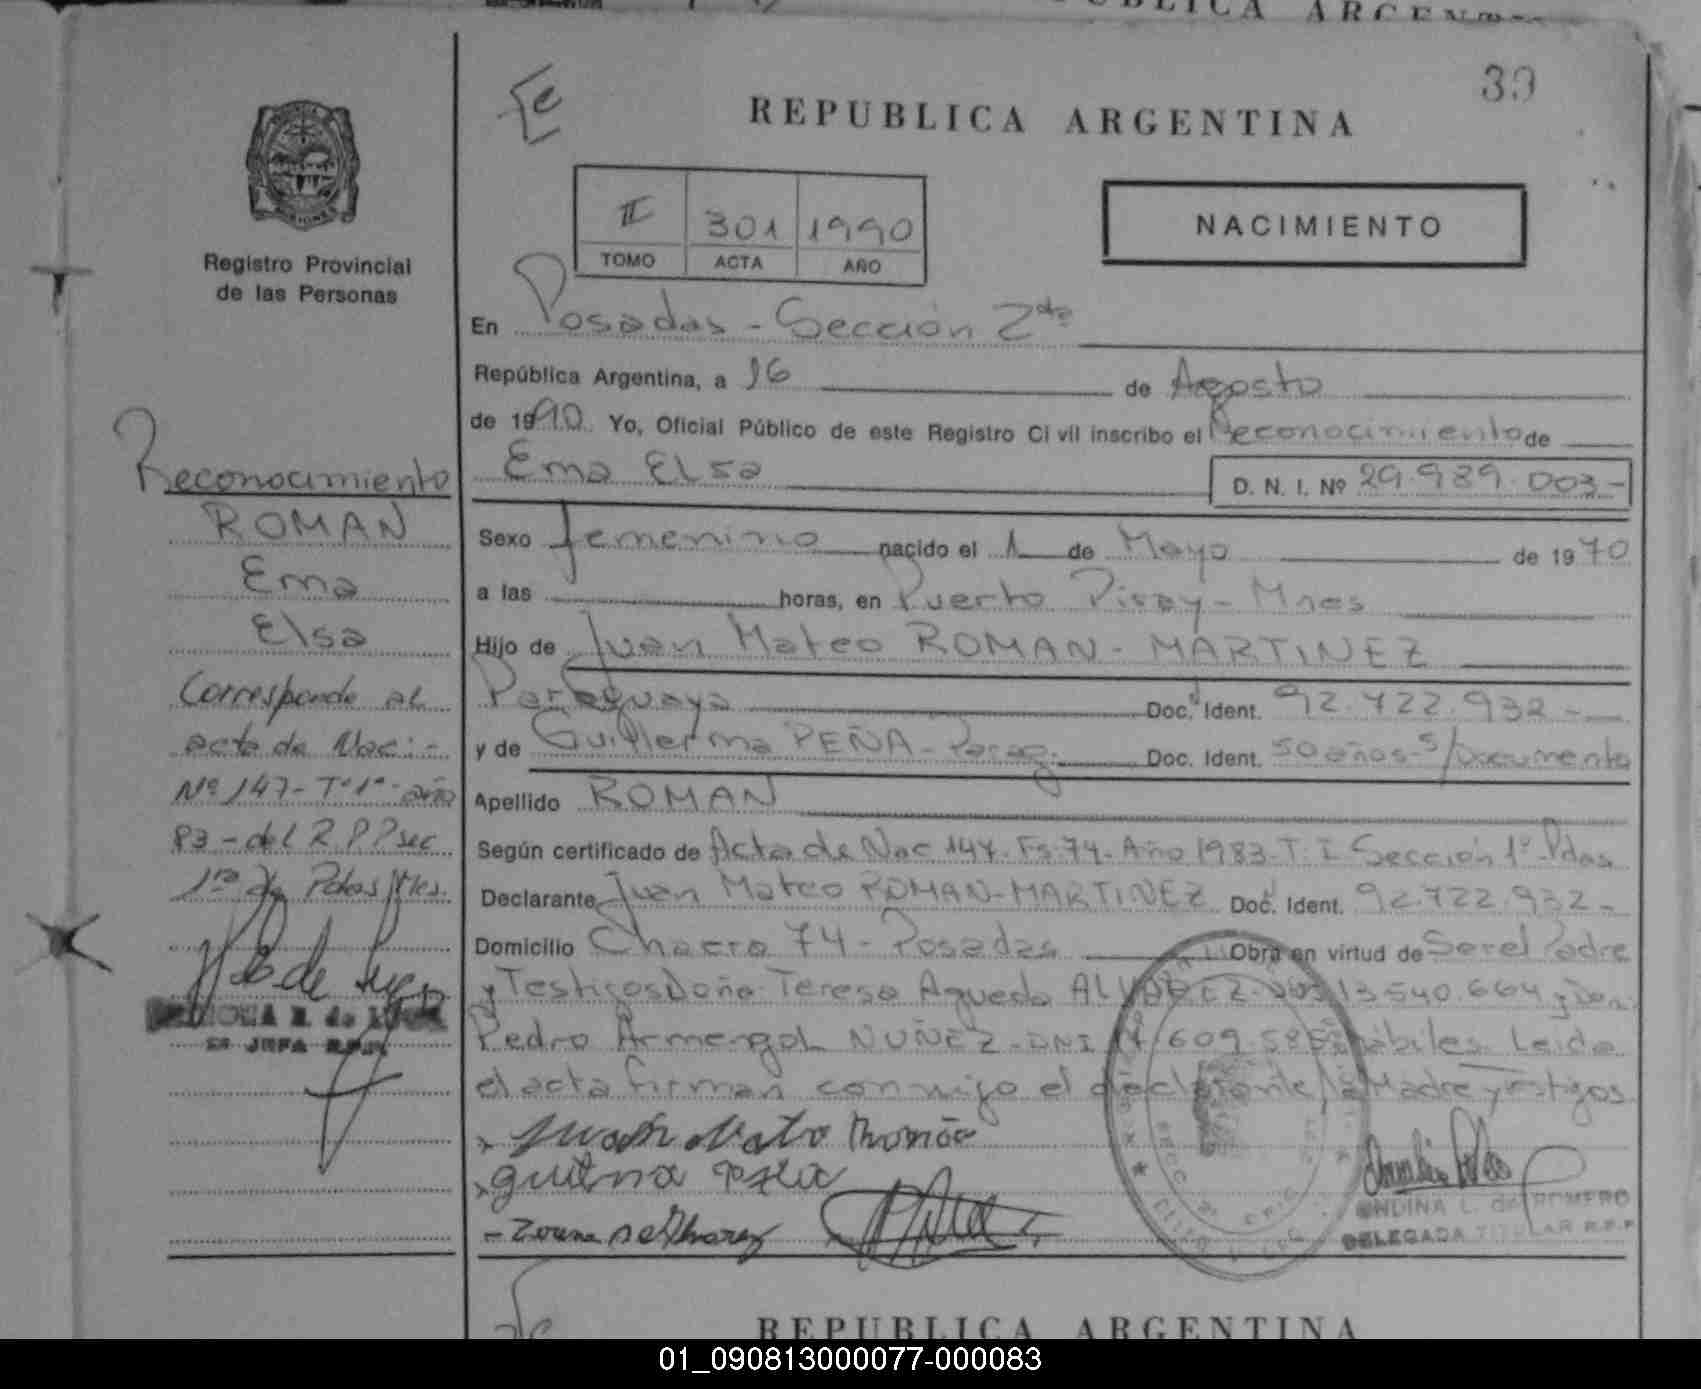 39
REPUBLICA ARGENTINA
II 301 1990
TOMO ACTA AÑO
NACIMIENTO
MISIONES
Registro Provincial
de las Personas
En Posadas - Sección 2da
República Argentina, a 16 de Agosto
de 1990. Yo, Oficial Público de este Registro Civil inscribo el Reconocimiento de
Ema Elsa D. N. I. Nº 29.989.003-
Sexo femenino nacido el 1 de Mayo de 1970
a las horas, en Puerto Piray - Mnes
Hijo de Juan Mateo ROMAN - MARTINEZ
Paraguaya Doc. Ident. 92.722.932 -
y de Guillerma PEÑA - Parag. Doc. Ident. 50 años - s/Documento
Apellido ROMAN
Según certificado de Acta de Nac 147. Fs. 74. Año 1983. T. I. Sección 1º Pdas
Declarante Juan Mateo ROMAN-MARTINEZ Doc. Ident. 92.722.932 -
Domicilio Chacra 74 - Posadas Obra en virtud de Ser el Padre
y Testigos Doña Teresa Agueda 13.540.664 y Don
Pedro Armengol NUÑEZ - DNI hábiles. Leida
el acta firman conmigo el declarante, la Madre y testigos
Juan Mateo Román
ONDINA L. de ROMERO
DELEGADA TITULAR R.P.P
Reconocimiento
ROMAN
Ema
Elsa
Corresponde al
acta de Nac: -
Nº 147 - Tº 1º - año
83 - del R P P sec
1ra de Pdas Mes.
JEFA R.P.P.
REPUBLICA ARGENTINA
01_090813000077-000083